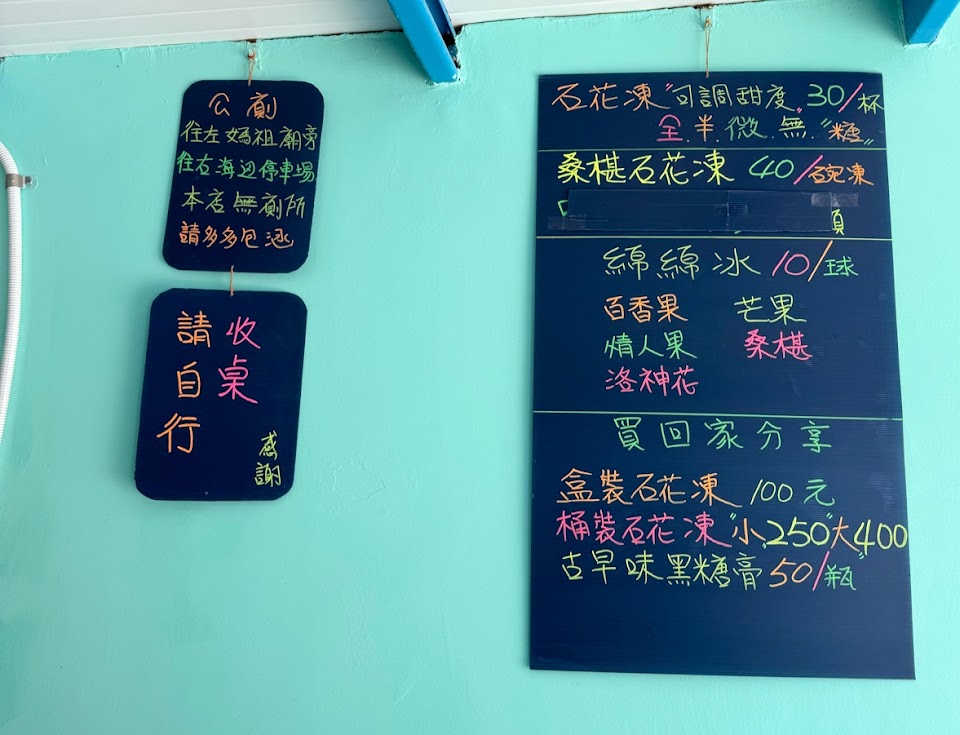 公廁
往左媽祖廟旁
往右海边停車場
本店無廁所
請多多包涵
請自行
收桌
感謝
石花凍"可調甜度" 30/杯
全.半.微.無."糖"
桑椹石花凍 40/碗凍
綿綿冰 10/球
百香果 芒果
情人果 桑椹
洛神花
買回家分享
盒裝石花凍 100元
桶裝石花凍"小250"大400"
古早味黑糖膏50/瓶